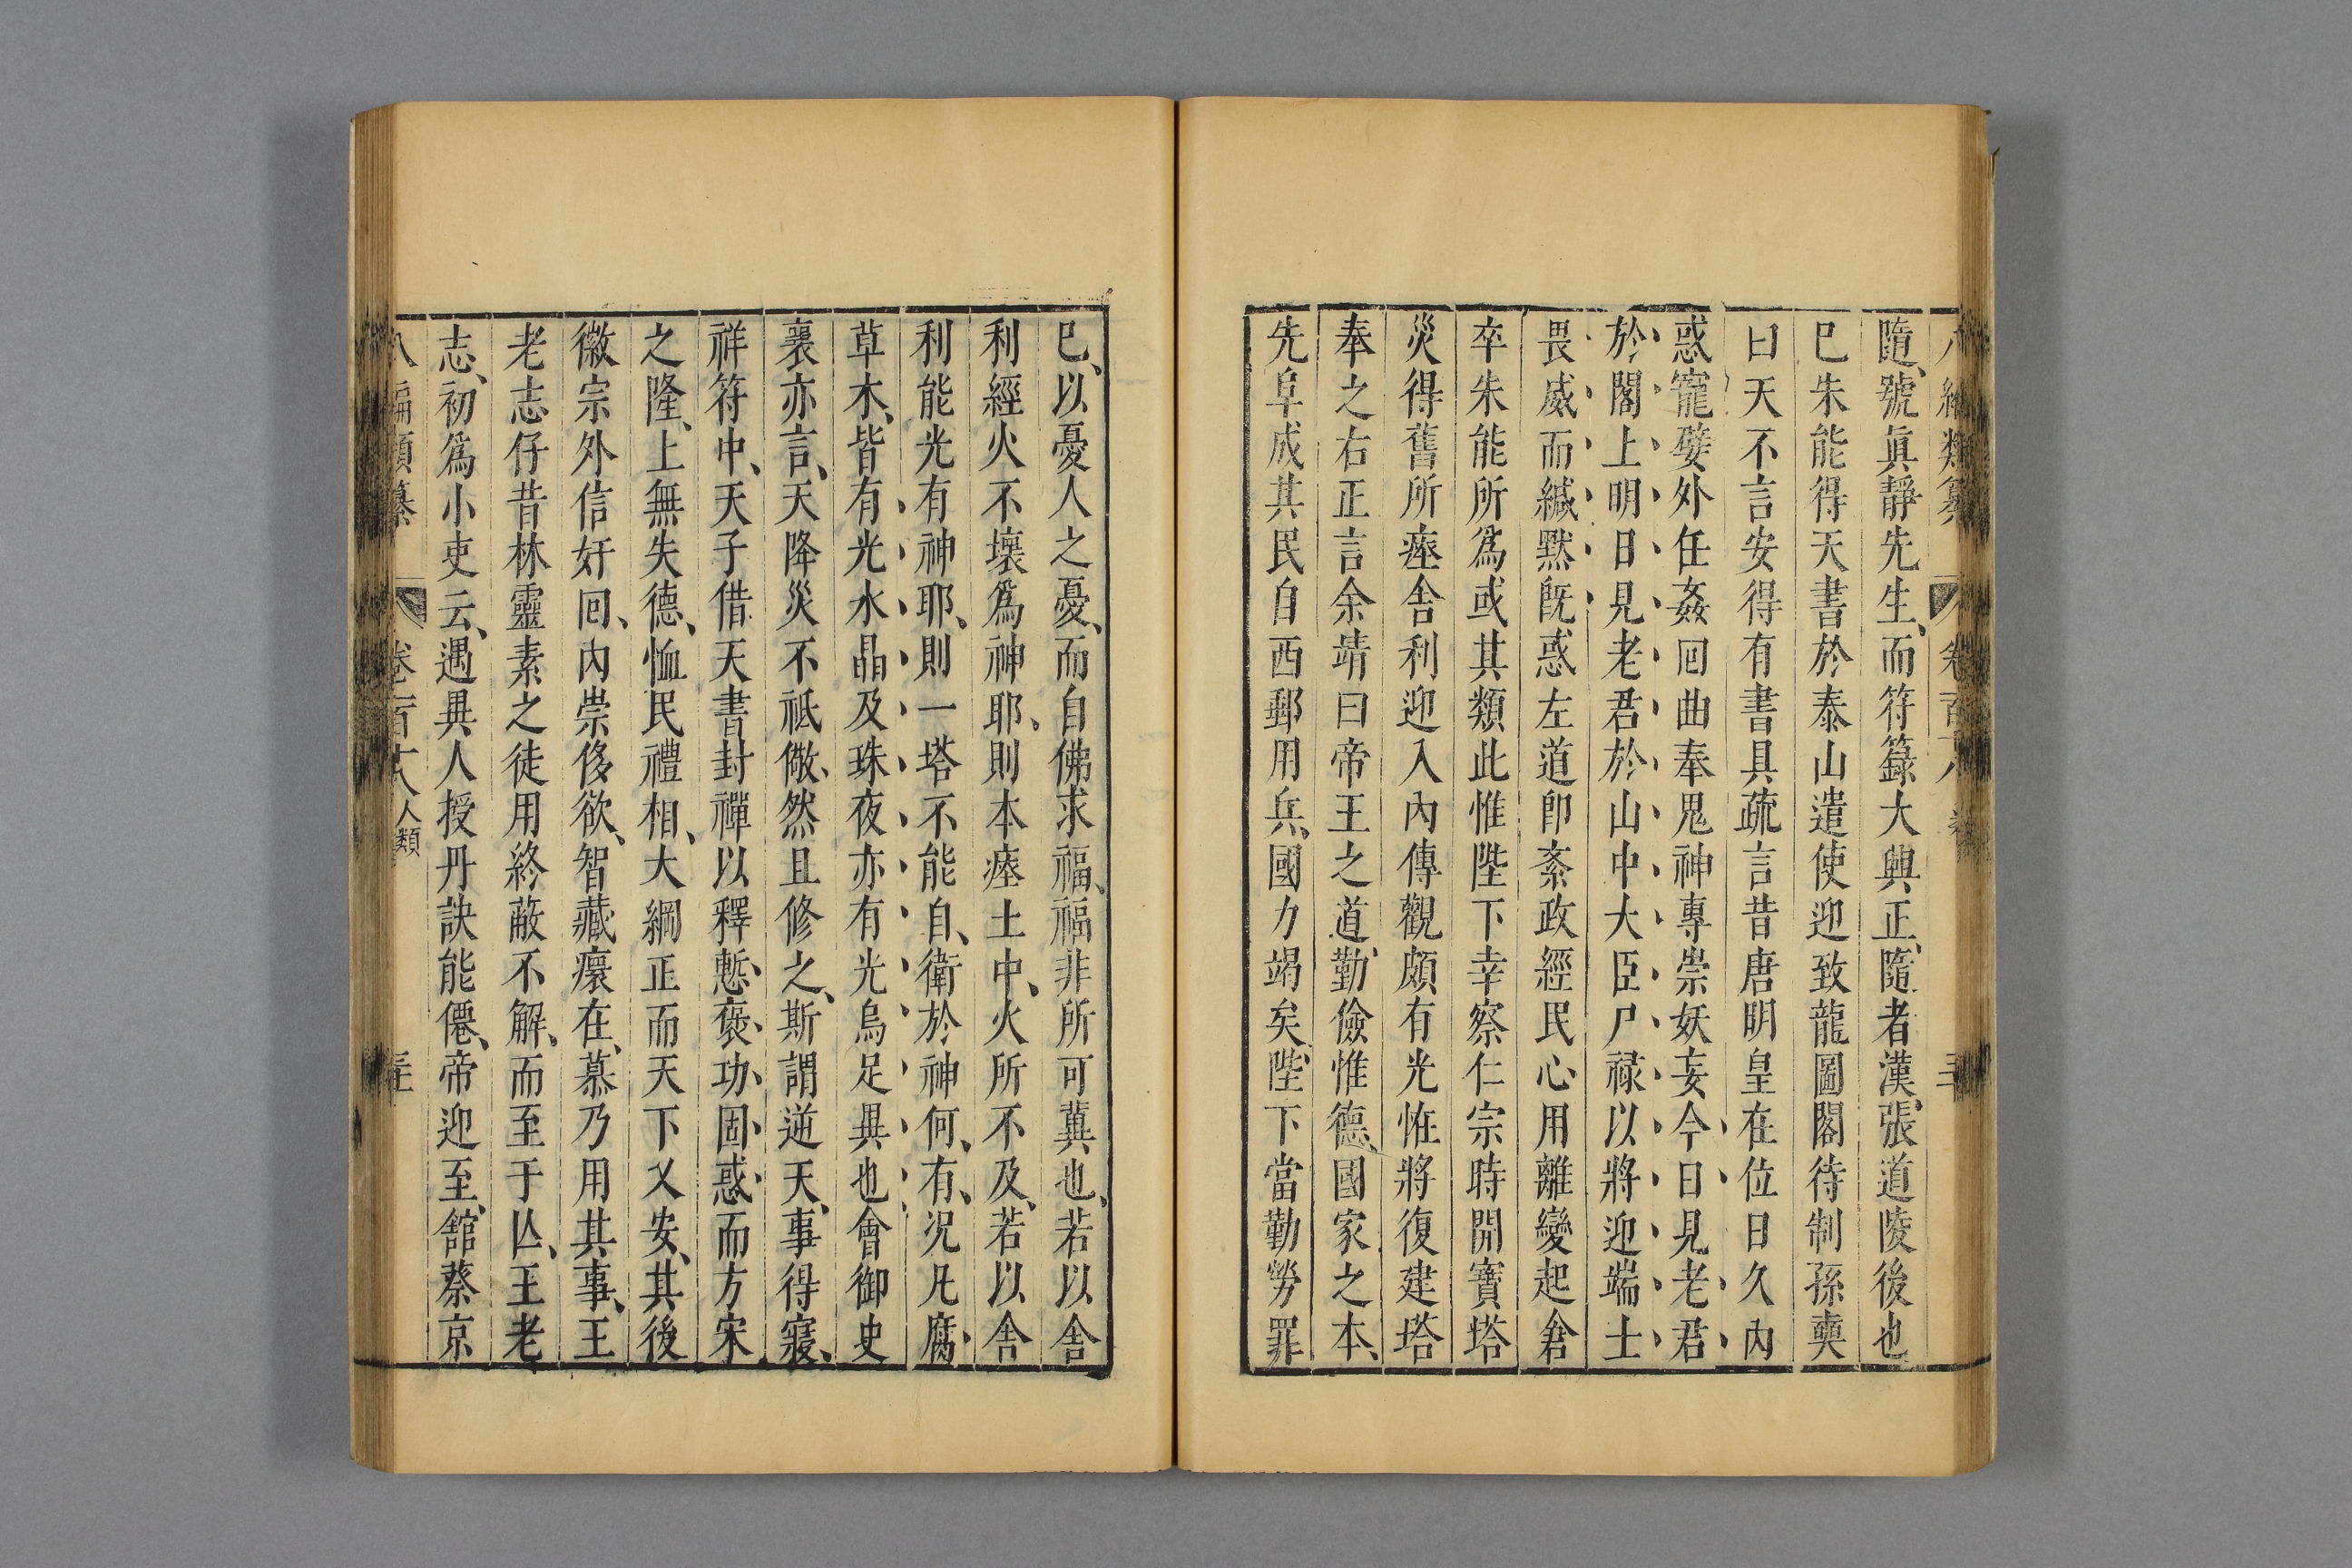 隨號眞靜先生、而符籙大興正、隨者漢、張道陵後也
巳朱能得天書於泰山遣使迎致龍圖閣待制孫奭
曰天不言安得有書具疏言昔唐明皇在位日久內
惑寵嬖外任姦回曲奉鬼神專崇妖妄今日見老君
於閣上明日見老君於山中大臣尸祿以將迎端士
畏威而緘默旣惑左道卽紊政經民心用離變起倉
卒朱能所爲或其類此惟陛下幸察仁宗時開寶塔
災得舊所瘞舍利迎入內傳觀頗有光怪將復建塔
奉之右正言余靖曰帝王之道、勤儉惟德、國家之本、
先阜成其民自西郵用兵、國力竭矣、陛下當勤勞罪
巳、以憂人之憂、而自佛求福、福非所可冀也、若以舍
利經火不壞爲神耶、則本瘞土中、火所不及、若以舍
利能光有神耶、則一塔不能自、衛於神何、有、况凡腐
草木、皆有光水晶及珠夜亦有光烏足異也會御史
襄亦言、天降災不祗儆、然且修之、斯謂逆天、事得寢、
祥符中、天子借天書封禪以釋慙褒功固惑而方宋
之隆、上無失德、恤民禮相、大綱正而天下乂安、其後
徽宗外信奸回、內崇侈欲、智藏瘝在、慕乃用其事、王
老志仔昔林靈素之徒用終蔽不解、而至于亾、王老
志、初爲小吏云、遇異人授丹訣能僊、帝迎至、舘蔡京
八編類纂 卷一百十八 人類